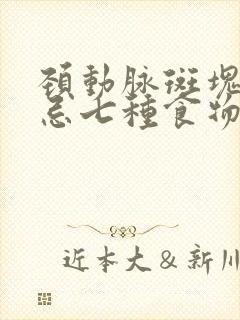 頚動脉斑塊
忌七種食物
近本大＆新川